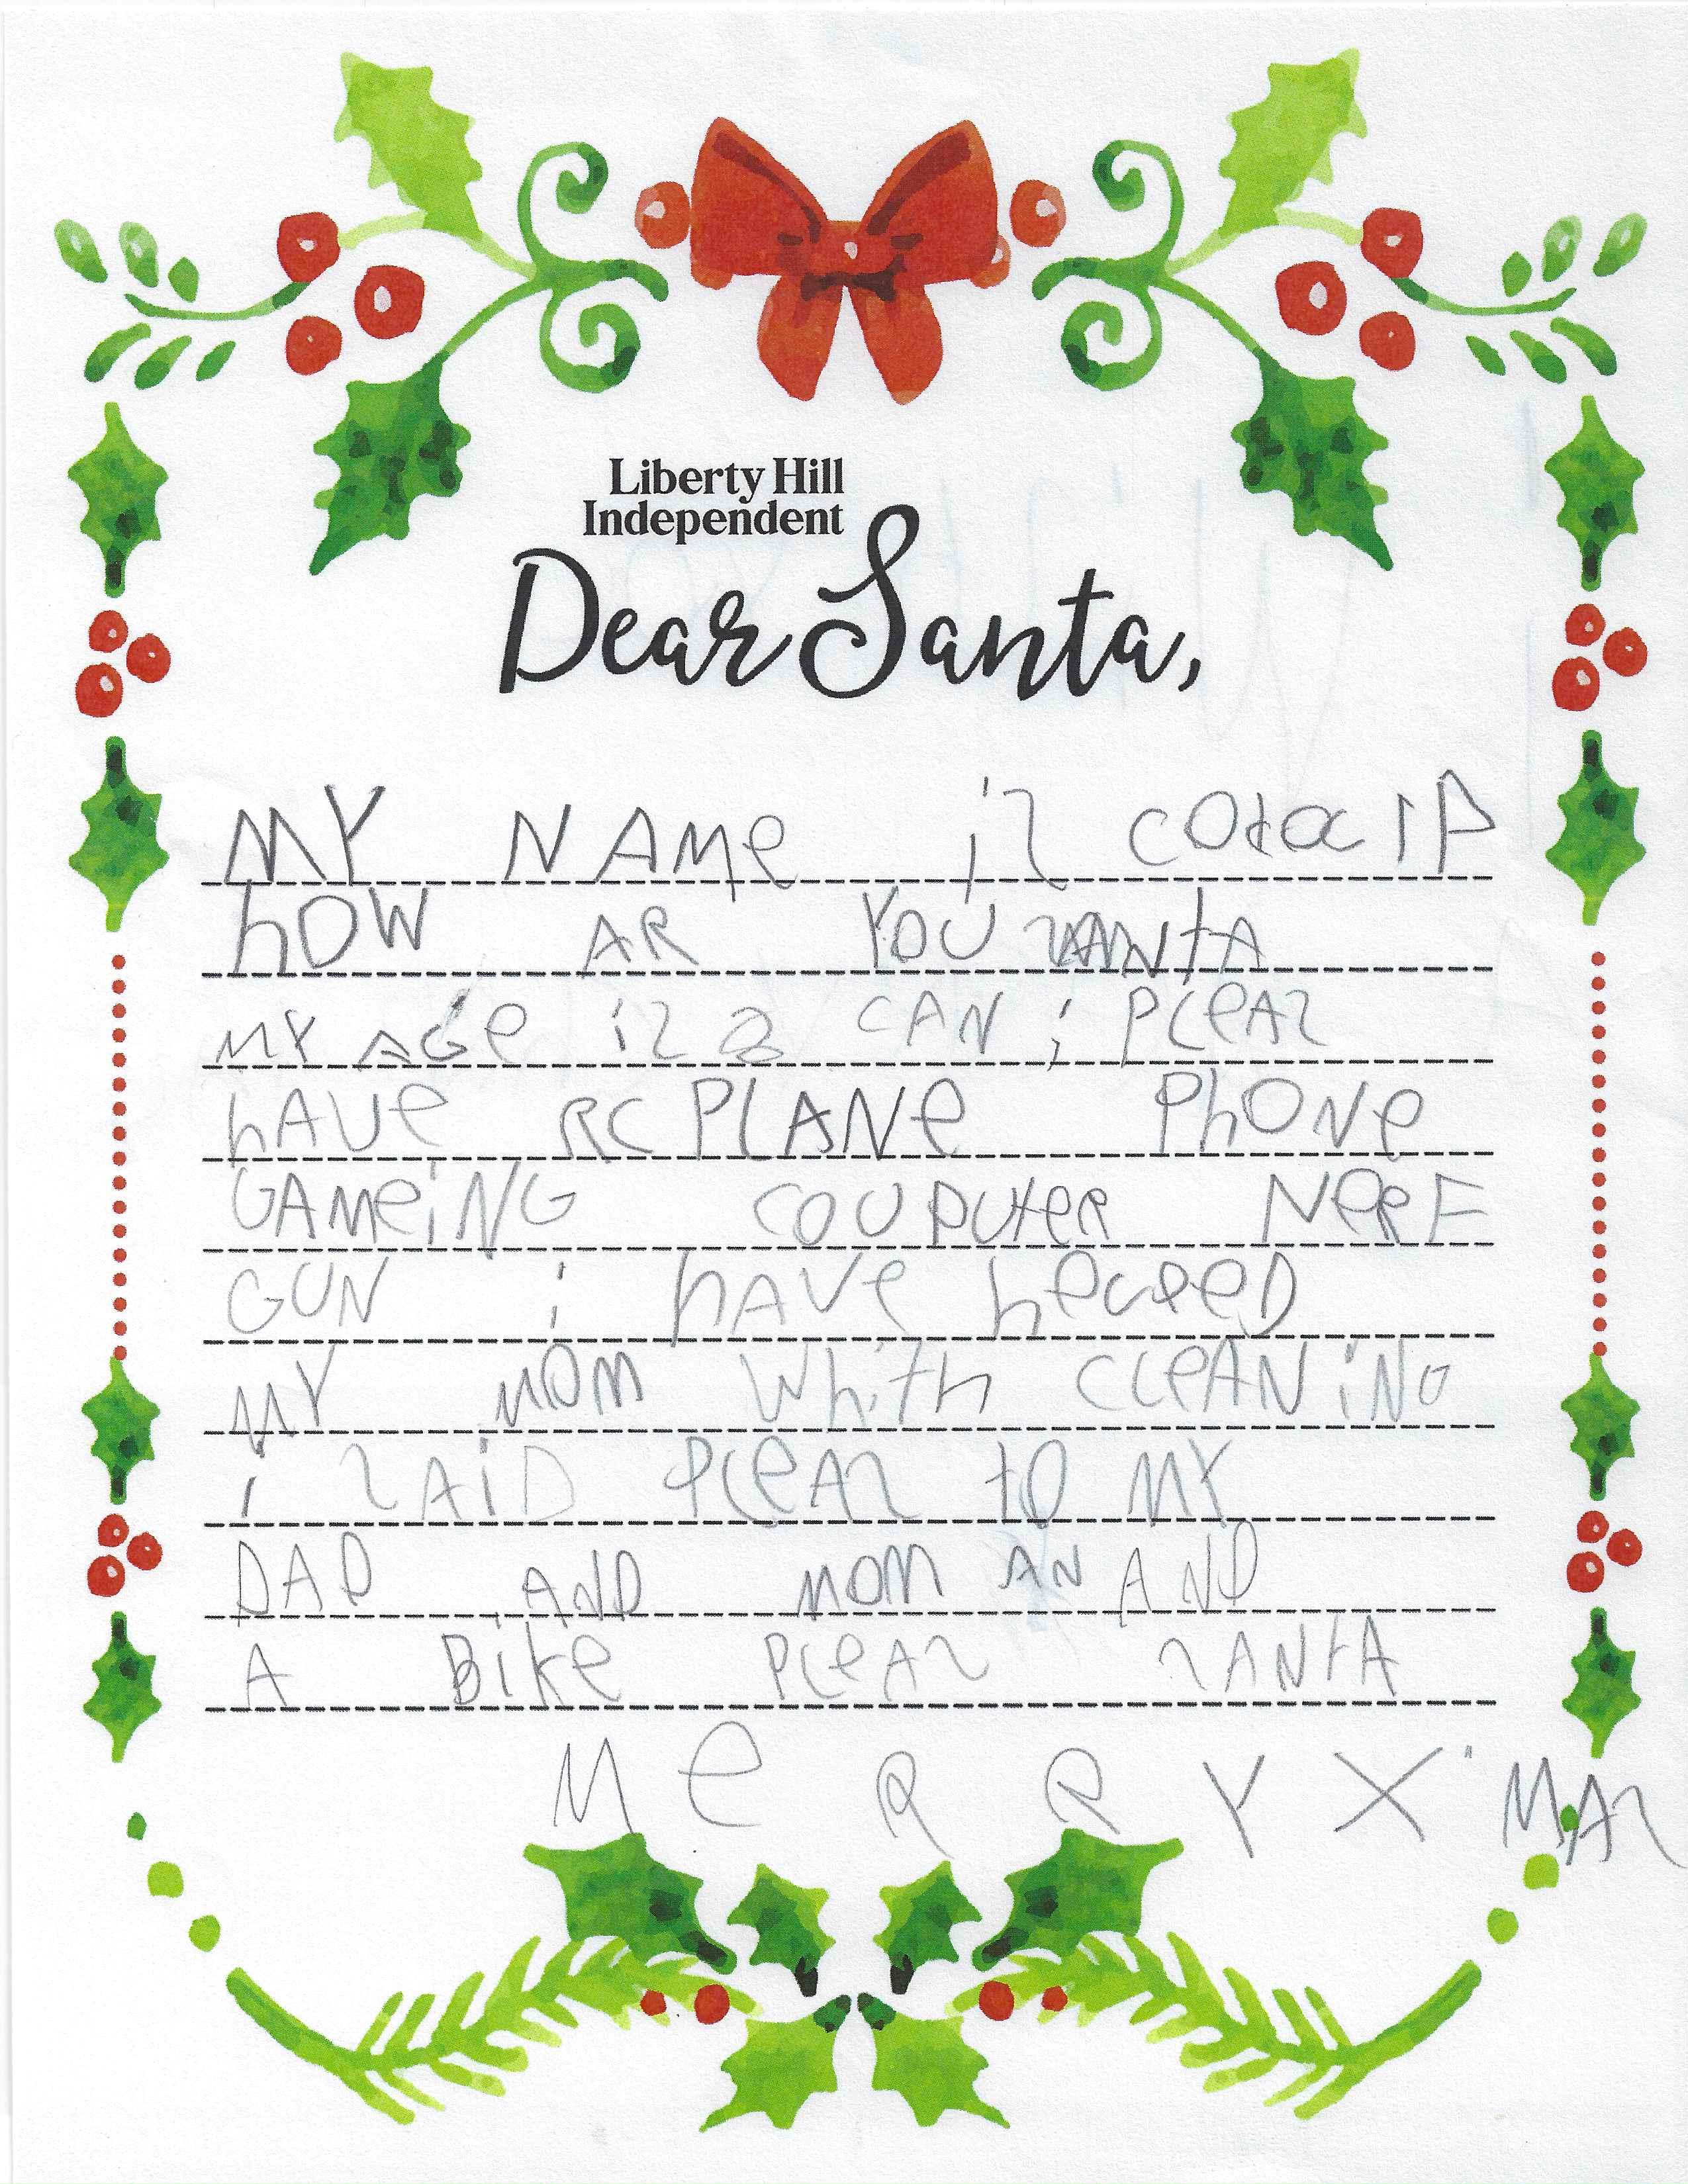 Liberty Hill
Independent
Dear Santa,
MY NAMe is
hOW AR YOU SANtA
MY AGe is 8 CAN i PleAs
hAVe RC PlANe PhONe
GAMeiNG COUPUteR NeRF
GUN i hAVe
MY MOM WhitH CleANiNG
i SAiD PleAs tO MY
DAD AND MOM AN AND
A Bike PleAs SANtA
MeRRY X'MAs